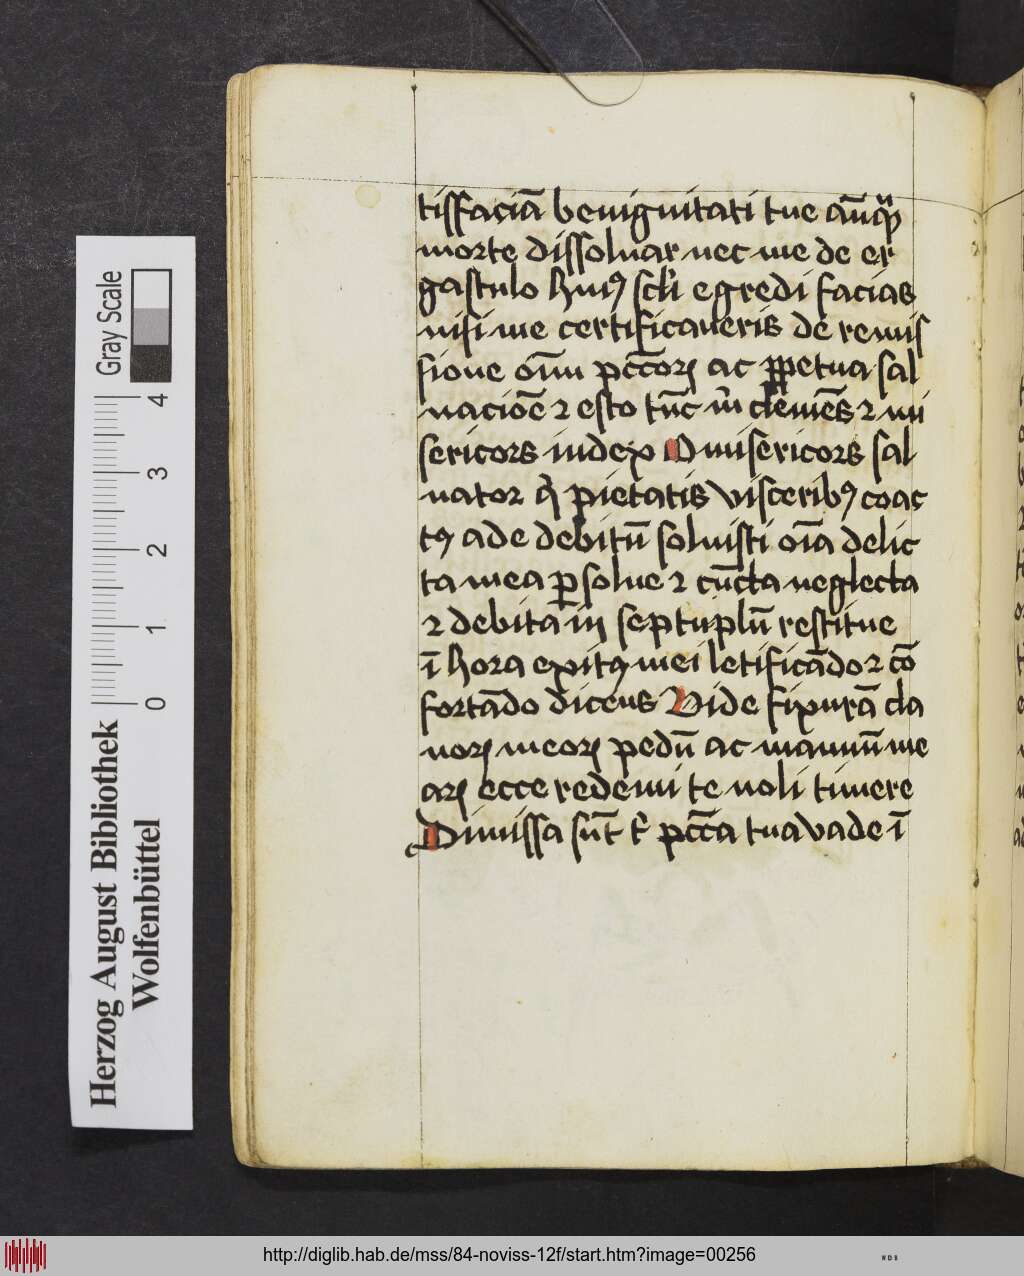 tisfaciā benignitati tue anq̄ꝫ
morte dissoluar nec me de er
gastulo huiꝰ scl̓i egredi facias
nisi me certificaueris de remis
sione oīm pcc̄orꝫ ac ꝑpetua sal
uacioē ⁊ esto tūc m̓ clemēs ⁊ mi
sericors iudex O misericors sal
uator q̓ pietatis visceribꝰ coac
tꝰ ade debitū soluisti oīa delic
ta mea ꝑsolue ⁊ cūcta neglecta
⁊ debita in septuplū restitue
ī hora exitꝰ mei letificādo ⁊ cō
fortādo dicens Vide fixurā cla
uorꝫ meorꝫ pedū ac manuū me
arꝫ ecce redemi te noli timere
Dimissa sūt t̓ pcc̄a tua vade ī
Gray Scale
4
3
2
1
0
Herzog August Bibliothek
Wolfenbüttel
http://diglib.hab.de/mss/84-noviss-12f/start.htm?image=00256